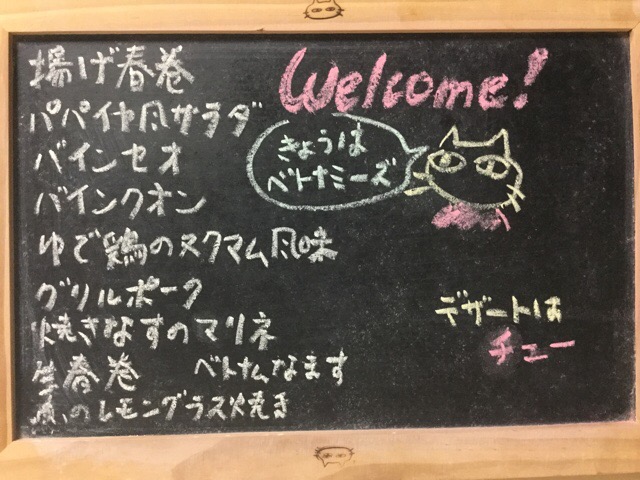 揚げ春巻
パパイヤ風サラダ
バインセオ
バインクオン
ゆで鶏のヌクマム風味
グリルポーク
焼きなすのマリネ
生春巻 ベトナムなます
魚のレモングラス焼き
Welcome!
きょうは
ベトナミーズ
デザートは
チェー